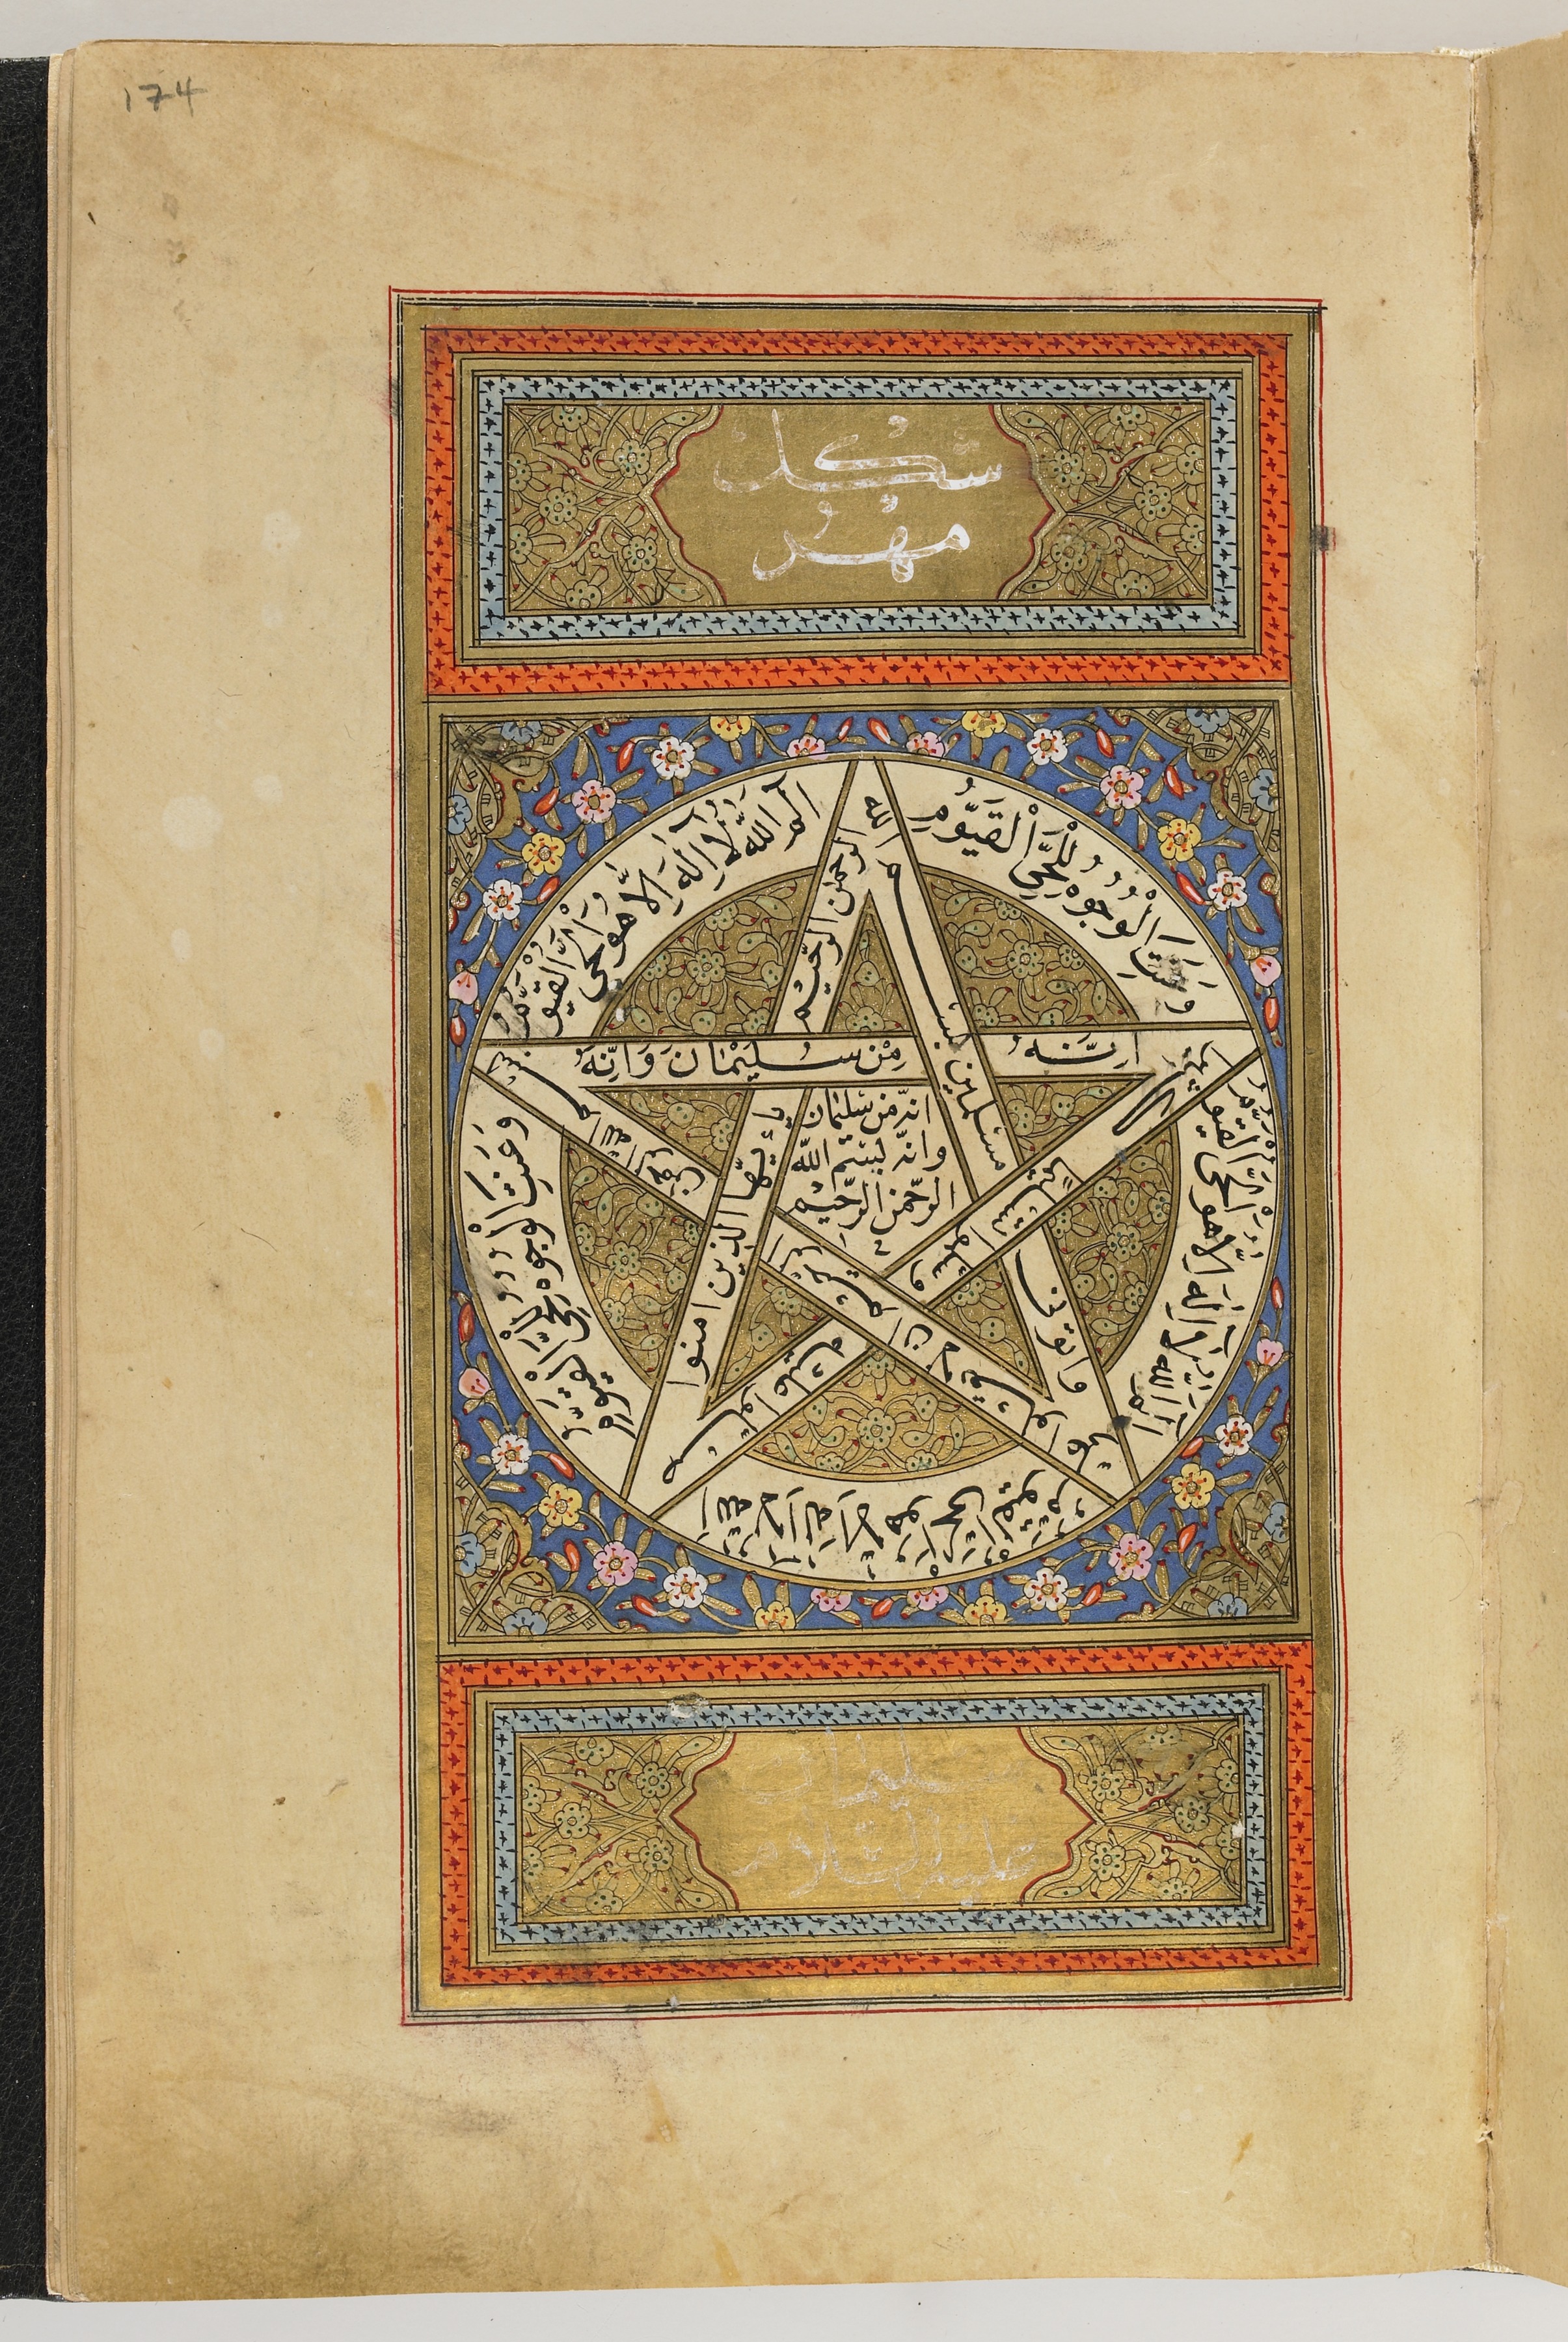 174
شكل
مهر
الم الله لا إله إلا هو الحي القيوم
وعنت الوجوه للحي القيوم
الم الله لا إله إلا هو الحي القيوم
الله لا إله إلا هو الحي القيوم
وعنت الوجوه للحي القيوم
إنه
مِنْ سليمان وَإِنَّهُ
بسم
الله الرحمن الرحيم
مسلمين
يا أيها الذين امنوا
صلوا عليه
وسلموا تسليما
انه من سليمان
وانه لبسم الله
الرحمن الرحيم
سليمان
عليه السلام